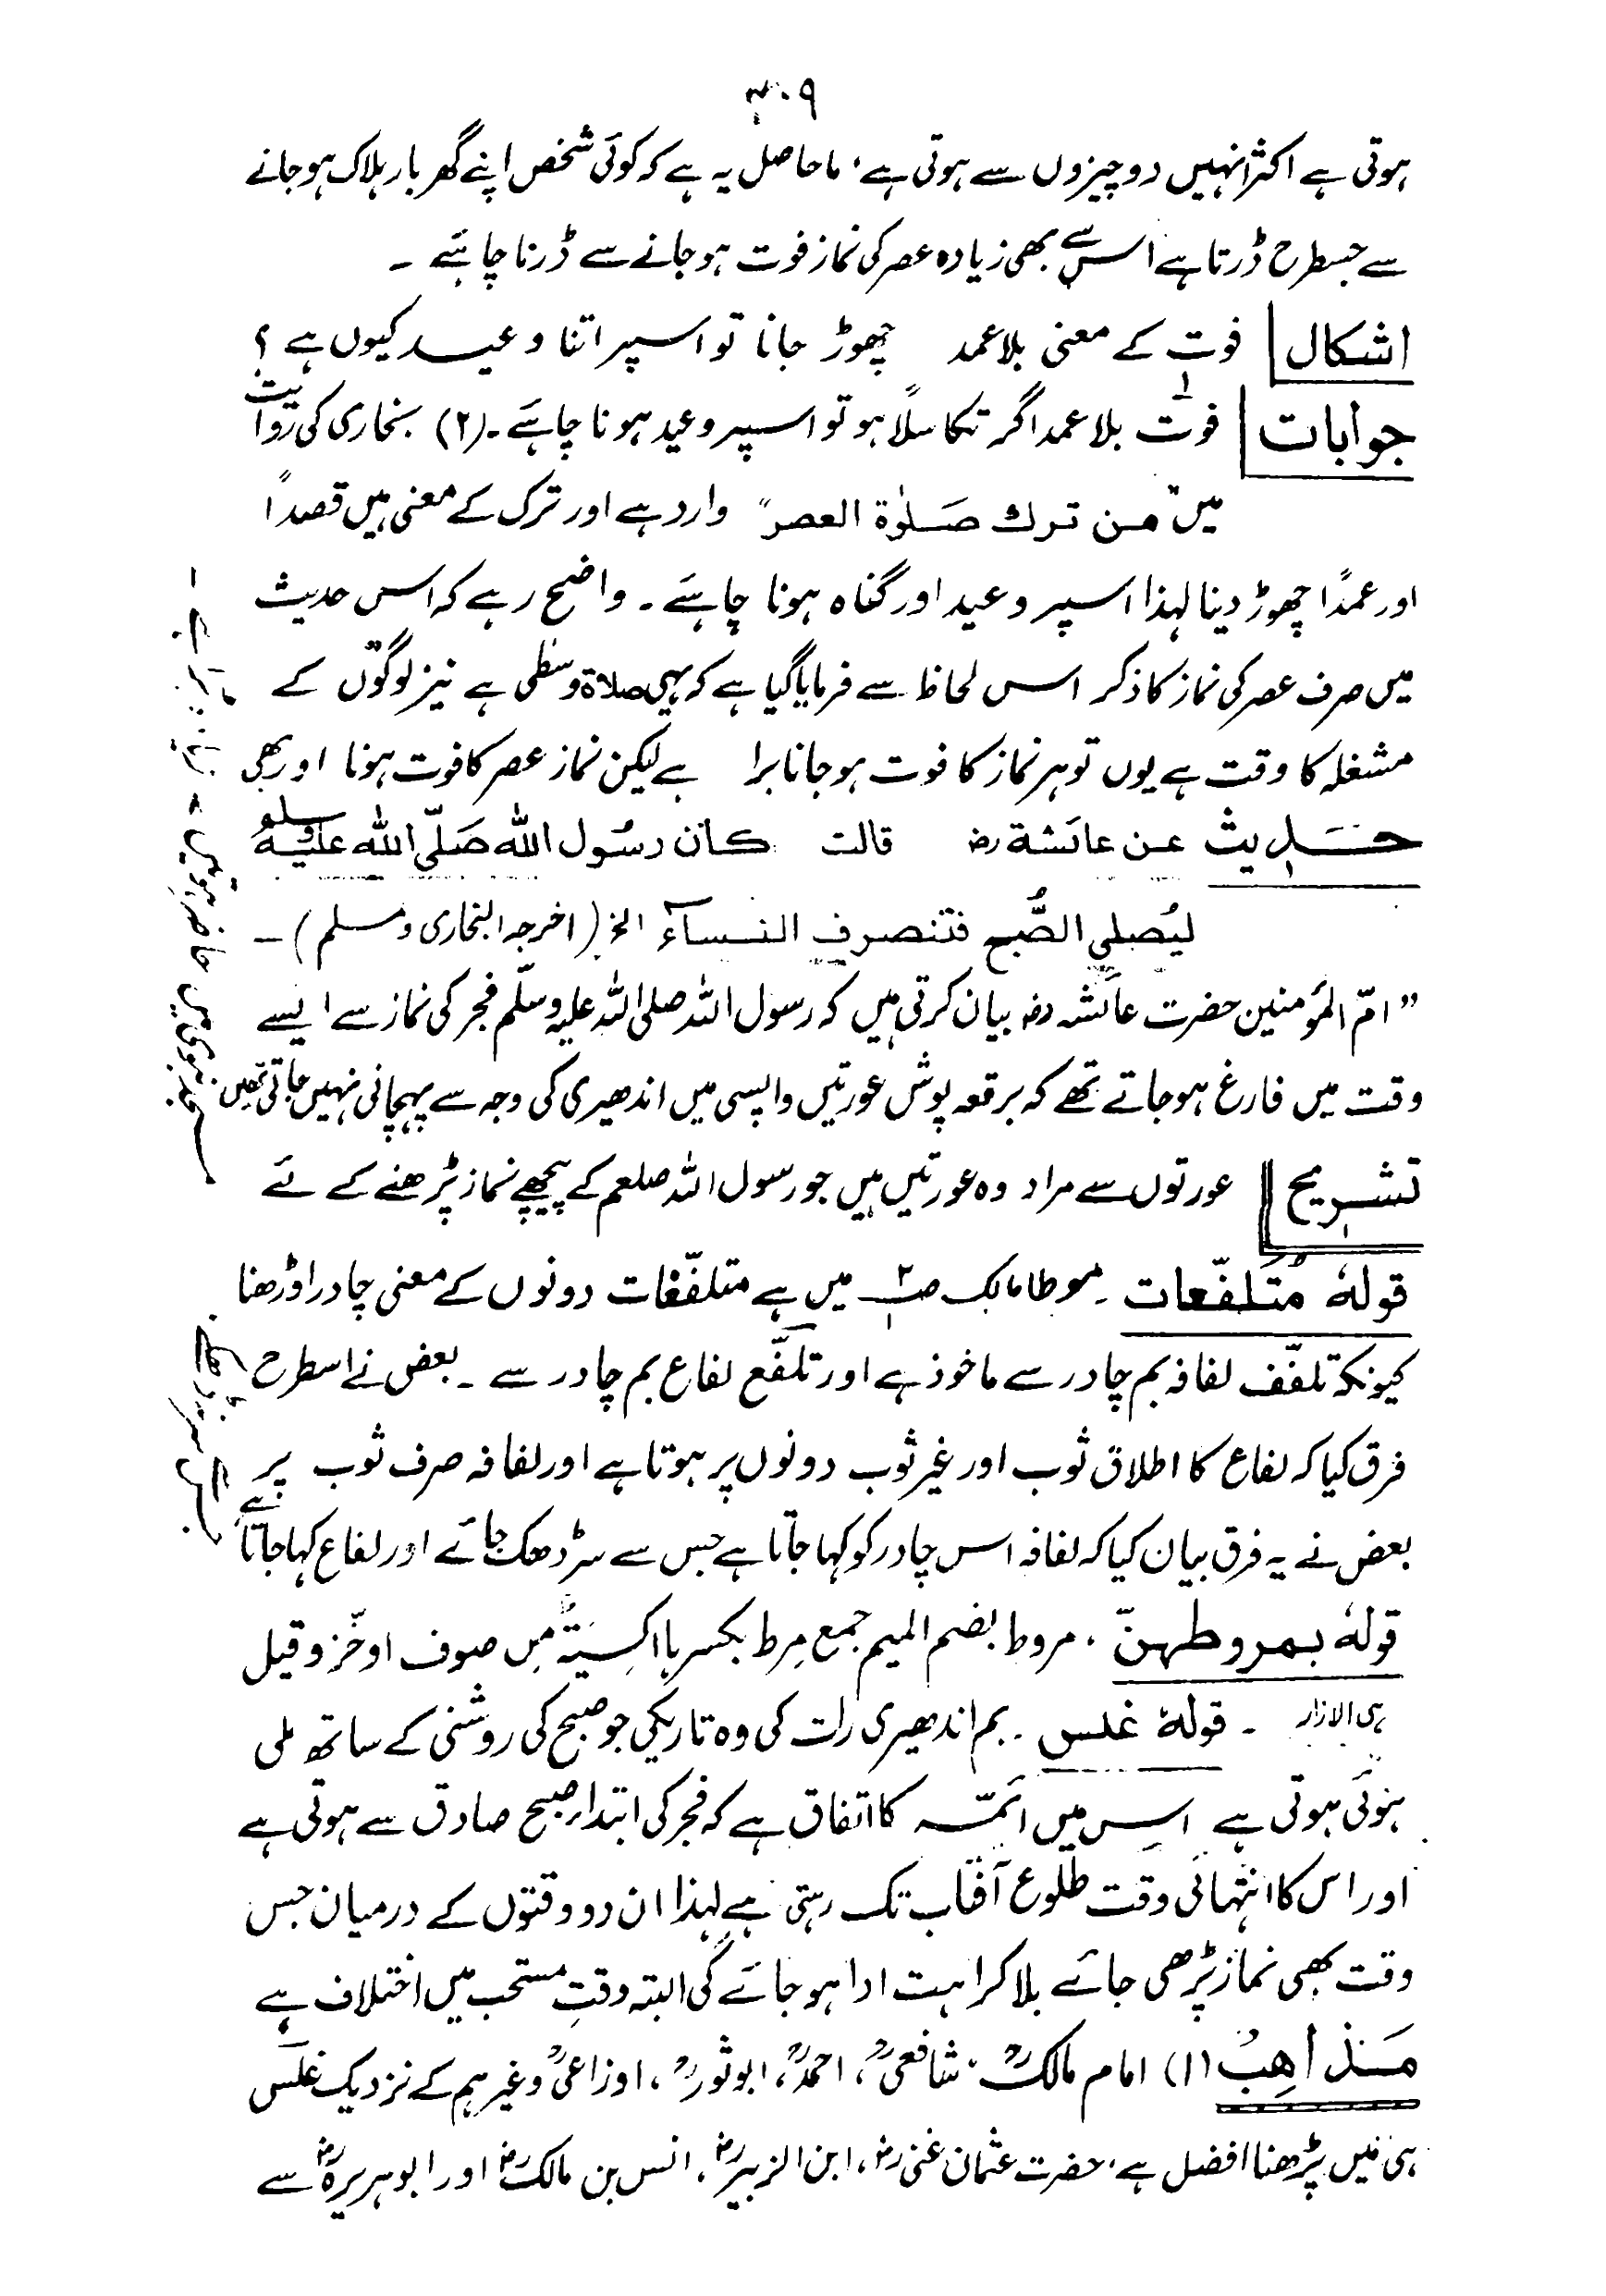 ۳۰۹
ہوتی ہے اکثر انہیں دو چیزوں سے ہوتی ہے، ماحاصل یہ ہے کہ کوئی شخص اپنے گھر بار ہلاک ہو جانے
سے جسطرح ڈرتا ہے اس سے بھی زیادہ عصر کی نماز فوت ہو جانے سے ڈرنا چاہئے ۔
اشکال فوت کے معنی بلا عمد چھوڑ جانا تو اسپر اتنا وعید کیوں ہے ؟
جوابات فوت بلا عمد اگر تکاسلًا ہو تو اسپر وعید ہونا چاہئے ۔ (۲) بخاری کی روایت
میں "من ترك صَلوٰة العصر" وارد ہے اور ترک کے معنی ہیں قصدًا
اور عمدًا چھوڑ دینا لہذا اسپر وعید اور گناہ ہونا چاہئے ۔ واضح رہے کہ اس حدیث
میں صرف عصر کی نماز کا ذکر اس لحاظ سے فرمایا گیا ہے کہ یہی صلاة وسطٰی ہے نیز لوگوں کے
مشغلہ کا وقت ہے یوں تو ہر نماز کا فوت ہو جانا برا ہے لیکن نماز عصر کا فوت ہونا اور بھی
برا ہے ۔
حَدِیث عن عائشة رض قالت كان رسُول الله صَلّى الله عليه وسلم
ليُصلي الصُّبح فتنصرف النساء الخ (اخرجہ البخاری ومسلم) ۔
" امّ المؤمنین حضرت عائشہ رض بیان کرتی ہیں کہ رسول اللہ صلی اللہ علیہ وسلّم فجر کی نماز سے ایسے
وقت میں فارغ ہو جاتے تھے کہ برقعہ پوش عورتیں واپسی میں اندھیری کی وجہ سے پہچانی نہیں جاتی تھیں
تشریح عورتوں سے مراد وہ عورتیں ہیں جو رسول اللہ صلعم کے پیچھے نماز پڑھنے کے لئے
مسجد نبوی میں حاضر ہوتیں ،
قولهٗ مُتَلفّعات ۔ موطا مالک ص۲ میں ہے متلفّفات دونوں کے معنی چادر اوڑھنا
کیونکہ تلفّف لفافہ بم چادر سے ماخوذ ہے اور تلفّع لفاع بم چادر سے ۔ بعض نے اسطرح
فرق کیا کہ لفاع کا اطلاق ثوب اور غیر ثوب دونوں پر ہوتا ہے اور لفافہ صرف ثوب پر
بعض نے یہ فرق بیان کیا کہ لفافہ اس چادر کو کہا جاتا ہے جس سے سر ڈھک جائے اور لفاع کہا جاتا ہے
جس سے سر نہ ڈھکے
قولهٗ بمروطهنّ ، مروط بضم المیم جمع مِرط بکسرہا اکسِیَةٌ مِن صوف او خَزّ وقیل
ہی الازار ۔ قولهٗ غلس ۔ بم اندھیری رات کی وہ تاریکی جو صبح کی روشنی کے ساتھ ملی
ہوئی ہوتی ہے اس میں ائمّہ کا اتفاق ہے کہ فجر کی ابتداء صبح صادق سے ہوتی ہے
اور اس کا انتہائی وقت طلوع آفتاب تک رہتی ہے لہذا ان دو وقتوں کے درمیان جس
وقت بھی نماز پڑھی جائے بلا کراہت ادا ہو جائے گی البتہ وقتِ مستحب میں اختلاف ہے
مَذاهِبُ (۱) امام مالکؒ، شافعیؒ، احمدؒ، ابو ثورؒ، اوزاعیؒ وغیرہم کے نزدیک غلَس
ہی میں پڑھنا افضل ہے، حضرت عثمان غنی رض، ابن الزبیر رض، انس بن مالک رض اور ابو ہریرہ رض سے